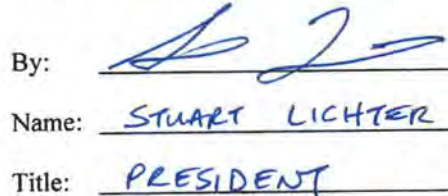 By:
Name: STUART LICHTER
Title: PRESIDENT